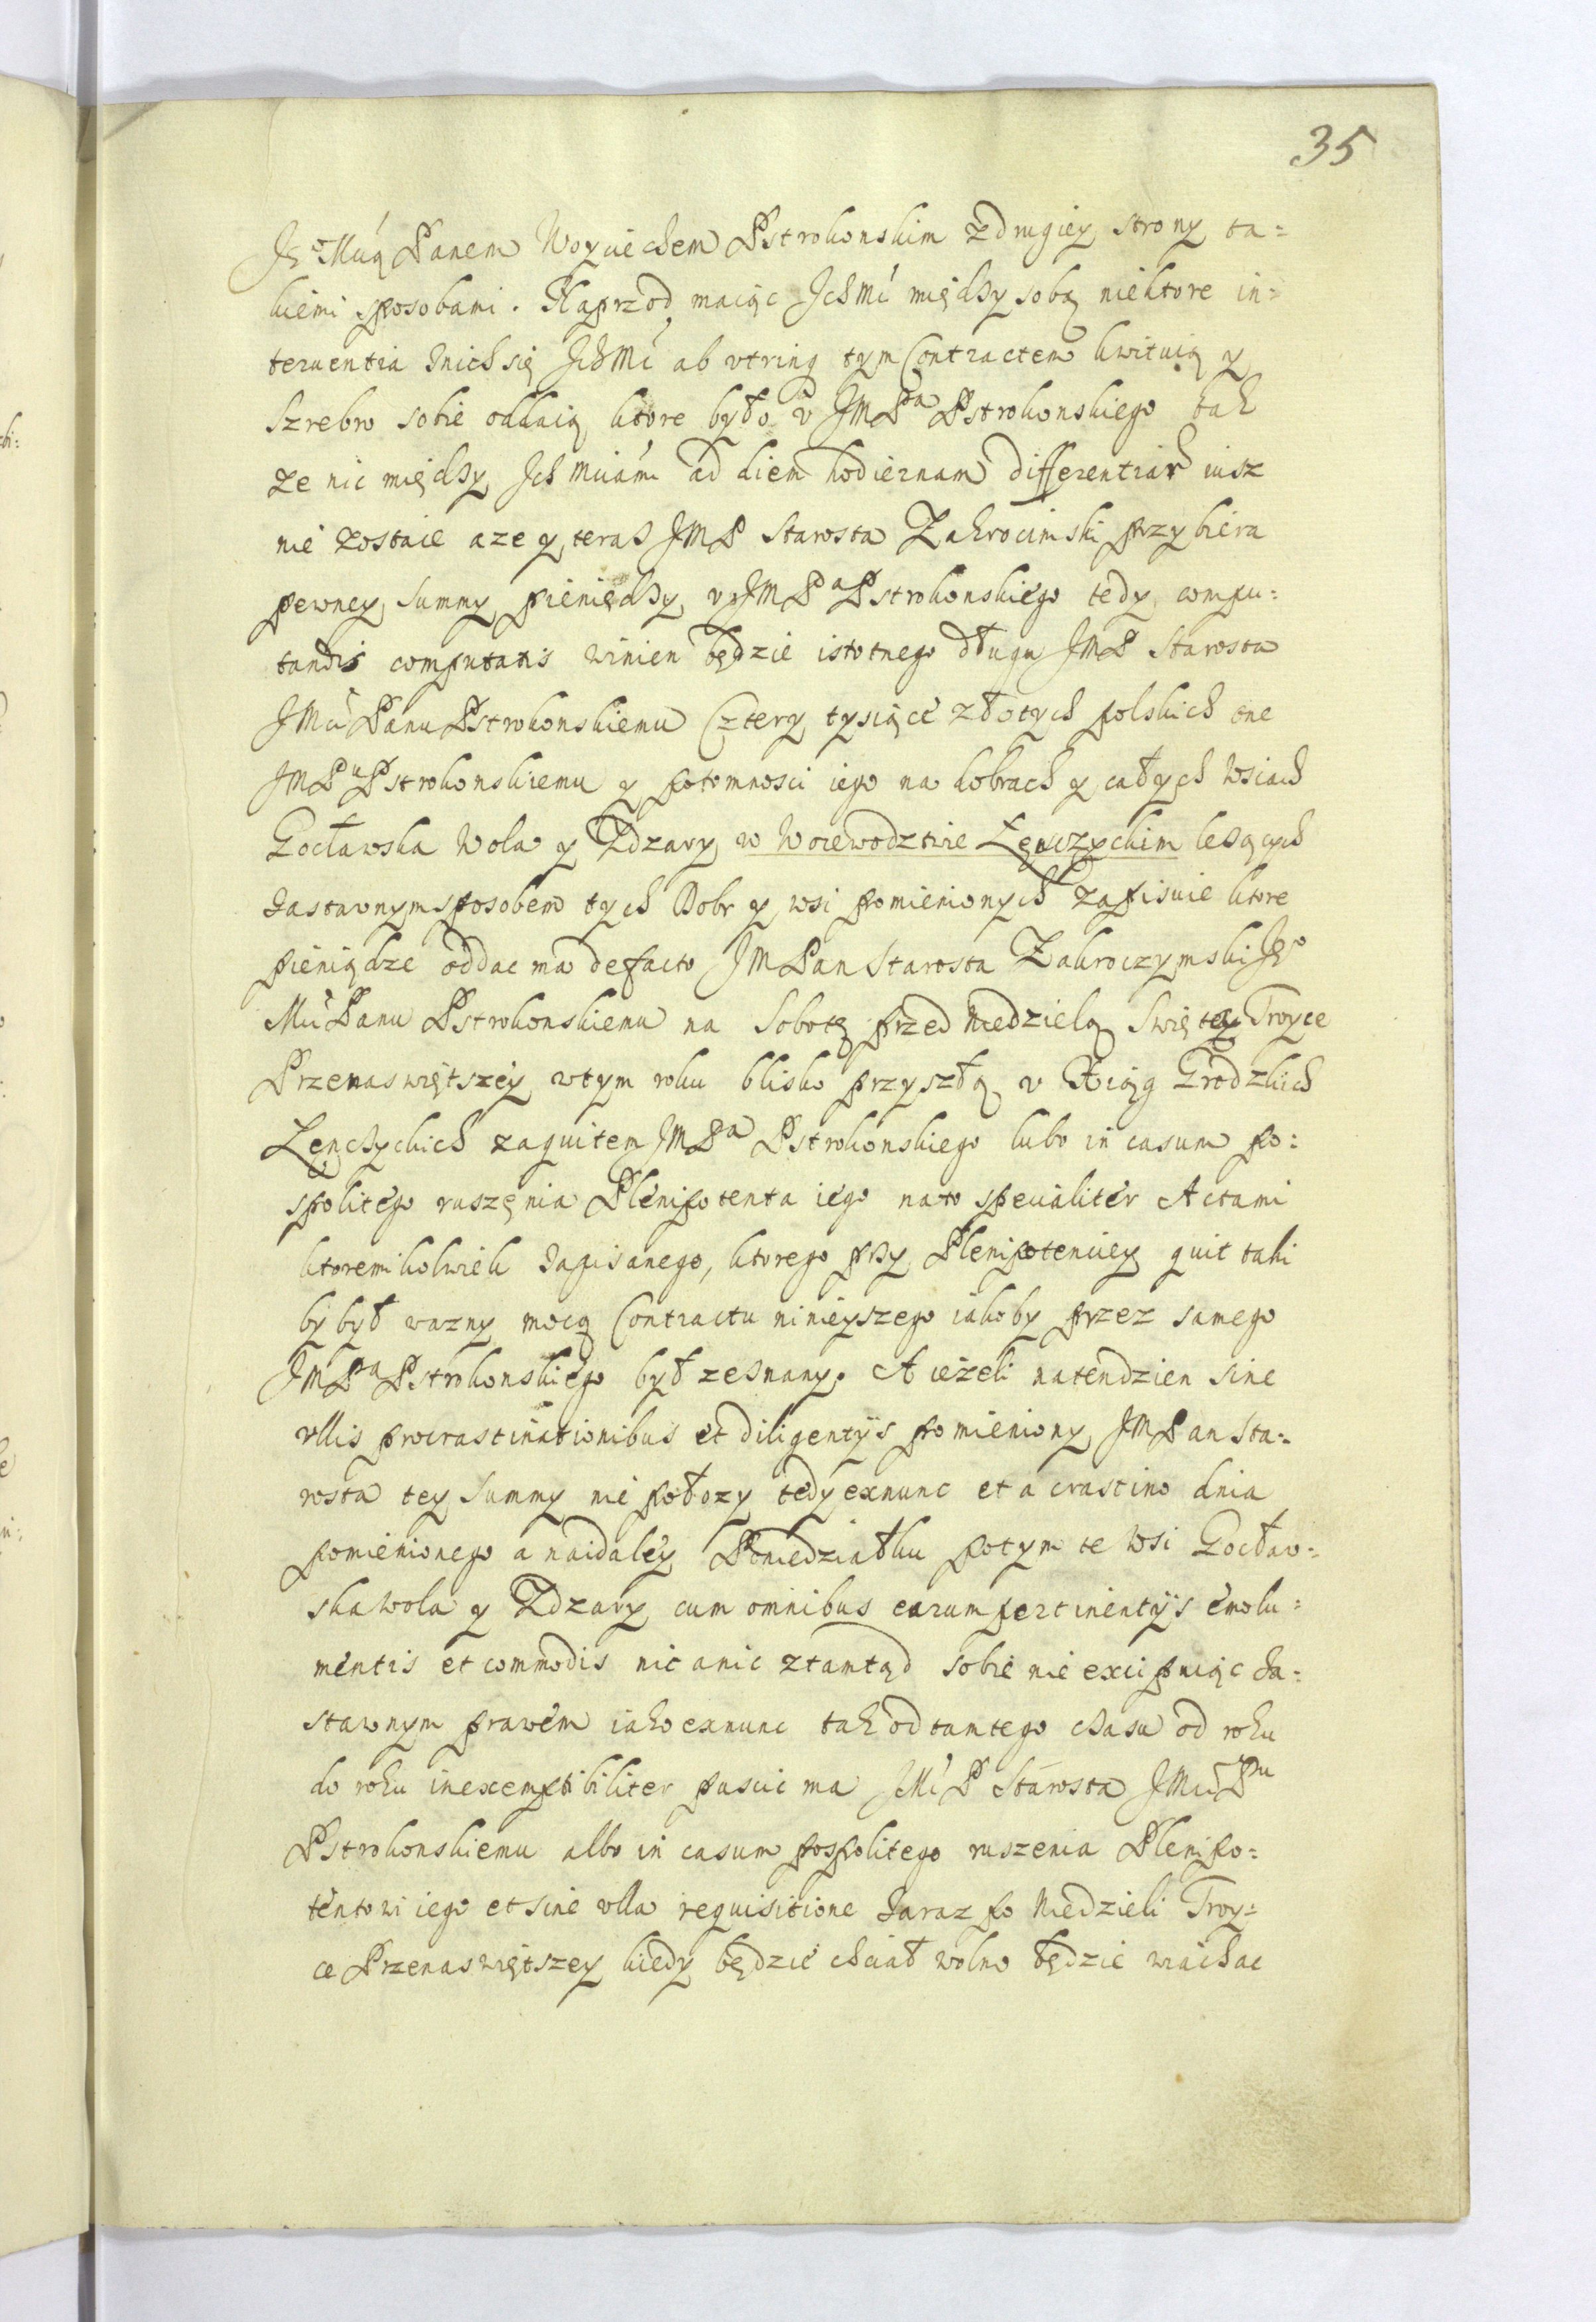 35
Je͠o Mćią Panem Woyciechem Pstrokonskim z drugiey strony ta=
kiemi sposobami. Naprzod maiąc Ich Mć między sobą niektore in=
teruentia z nich się Ich Mć ab vtrinq tym Contractem kwituią y
Szrebro sobie oddaią ktore było v JMPna Pstrokonskiego tak
ze nic między Ich Mciami ad diem hodiernam differentiar iusz
nie zostaie a ze y teraz JMP Starosta Zakrocimski przybiera
pewney Summy pieniędzy v JMPa Pstrokonskiego tedy compu:
tandis computatis winien będzie istotnego długu JMP Starosta
JMci Panu Pstrokonskiemu Cztery tysiące złotych polskich one
JMPu Pstrokonskiemu y potomnosci iego na dobrach y całych Wsiach
Gocławska Wola y Zdzary w Woiewodztwie Łęczyckim lezących
zastawnym sposobem tych Dobr y wsi pomienionych zapisuie ktore
pieniądze oddac ma de facto JMPan Starosta Zakroczymski Jeo
Mci Panu Pstrokonskiemu na Sobotę przed Niedzielą Swiętey Troyce
Przenaswiętszey w tym roku blisko przyszłą v Xiąg Grodzkich
Lęnczyckich za quitem JMPa Pstrokonskiego lubo in casum po:
spolitego ruszęnia Plenipotenta iego na to specialiter Actami
ktoremikolwiek zapisanego, ktorego przy Plenipotenciey quit taki
by był wazny mocą Contractu ninieyszego iakoby przez samego
JMPa Pstrokonskiego był zeznany. A iezeli na ten dzien sine
vllis procrastinationibus et diligentijs pomieniony JMPan Sta:
rosta tey Summy nie połozy tedy exnunc et a crastino dnia
pomienionego a naidaley Poniedziałku po tym te Wsi Gocław:
ska Wola y Zdzary cum omnibus earum pertinentijs emolu:
mentis et commodis nic a nic ztamtąd sobie nie excipuiąc za:
stawnym prawem iako exnunc tak od tamtego czasu od roku
do roku inexemptibiliter puscic ma JMć P Starosta JMci Pnu
Pstrokonskiemu albo in casum pospolitego ruszenia Plenipo:
tentowi iego et sine vlla requisitione zaraz po Niedzieli Troy:
ce Przenaswiętszey kiedy będzie chciał wolno będzie wiachac